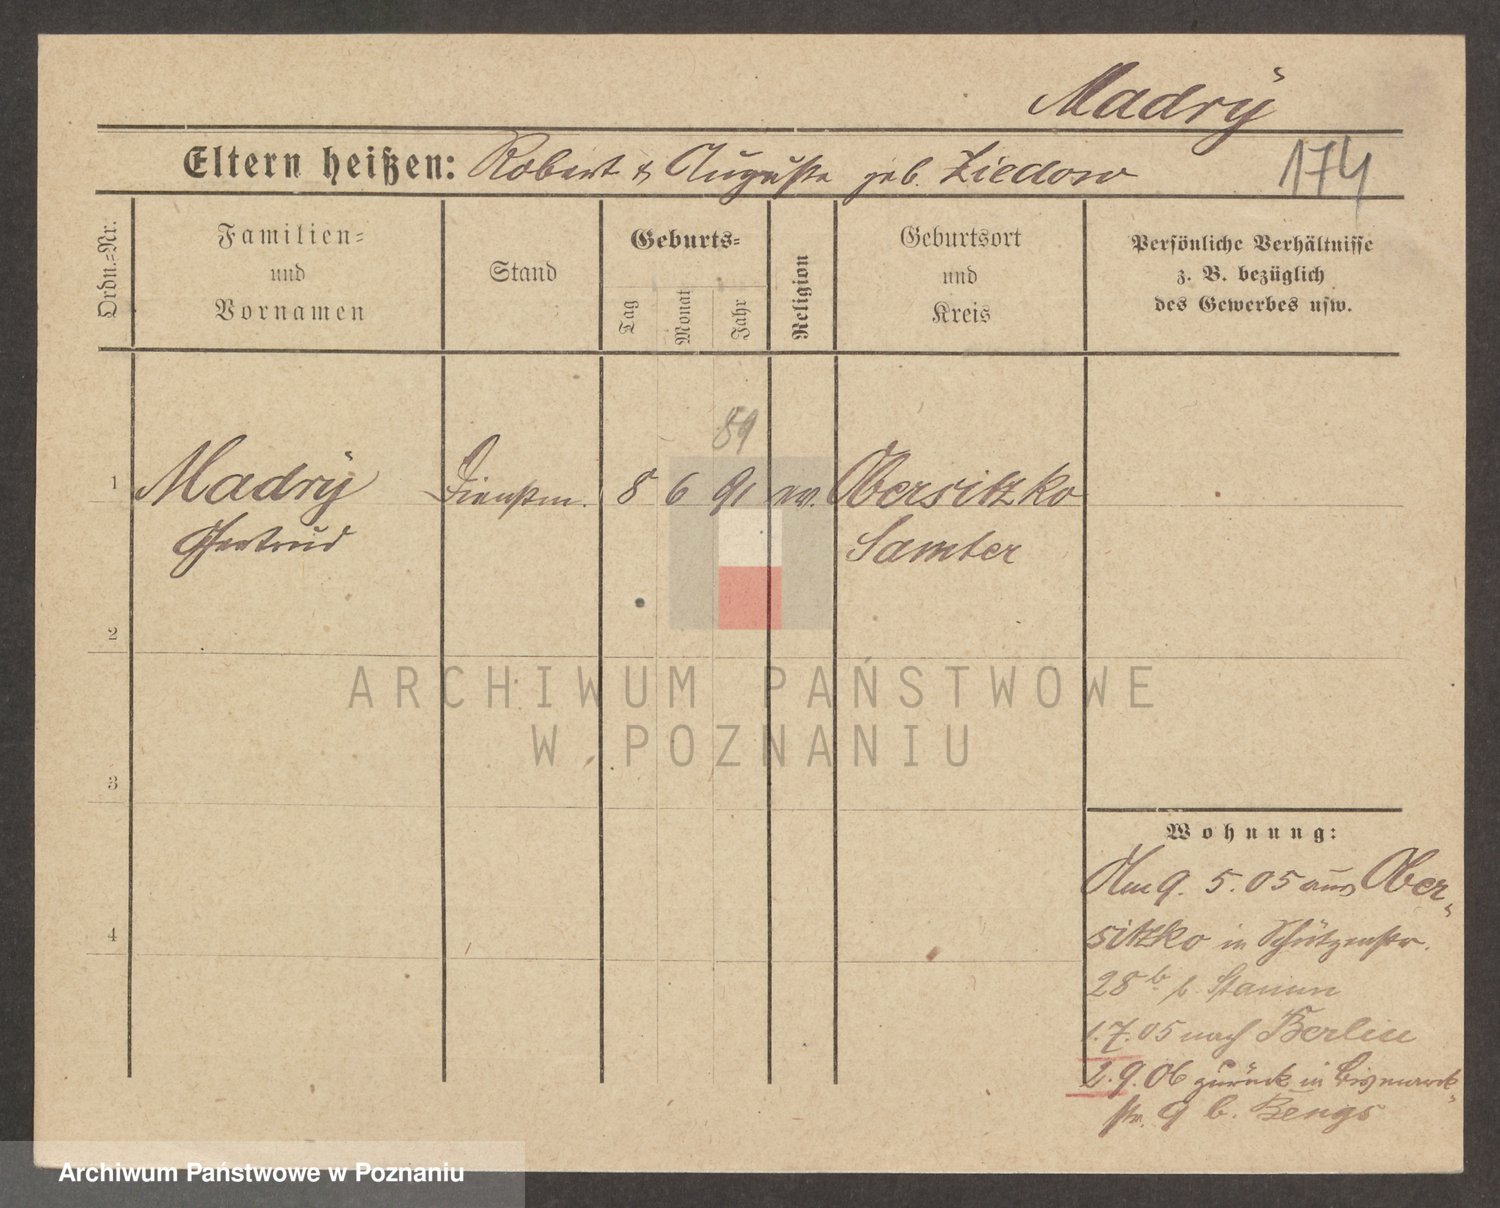 Madrÿ
Eltern heißen: Robert & Auguste geb. Ziedow
174
Ordn.-Nr.
Familien- und Vornamen
Stand
Geburts-
Tag
Monat
Jahr
Religion
Geburtsort und Kreis
Persönliche Verhältnisse
z. B. bezüglich
des Gewerbes usw.
89
1 Madrÿ Dienstm. 8 6 91 ev. Obersitzko
Gertrud Samter
2
3
4
ARCHIWUM PAŃSTWOWE
W POZNANIU
Wohnung:
Am 9. 5. 05 aus Ober-
sitzko in Schützenstr.
28b b. Stamm
1.7.05 nach Berlin
2.9.06 zurück in Bismarck-
str. 9 b. Bengs
Archiwum Państwowe w Poznaniu